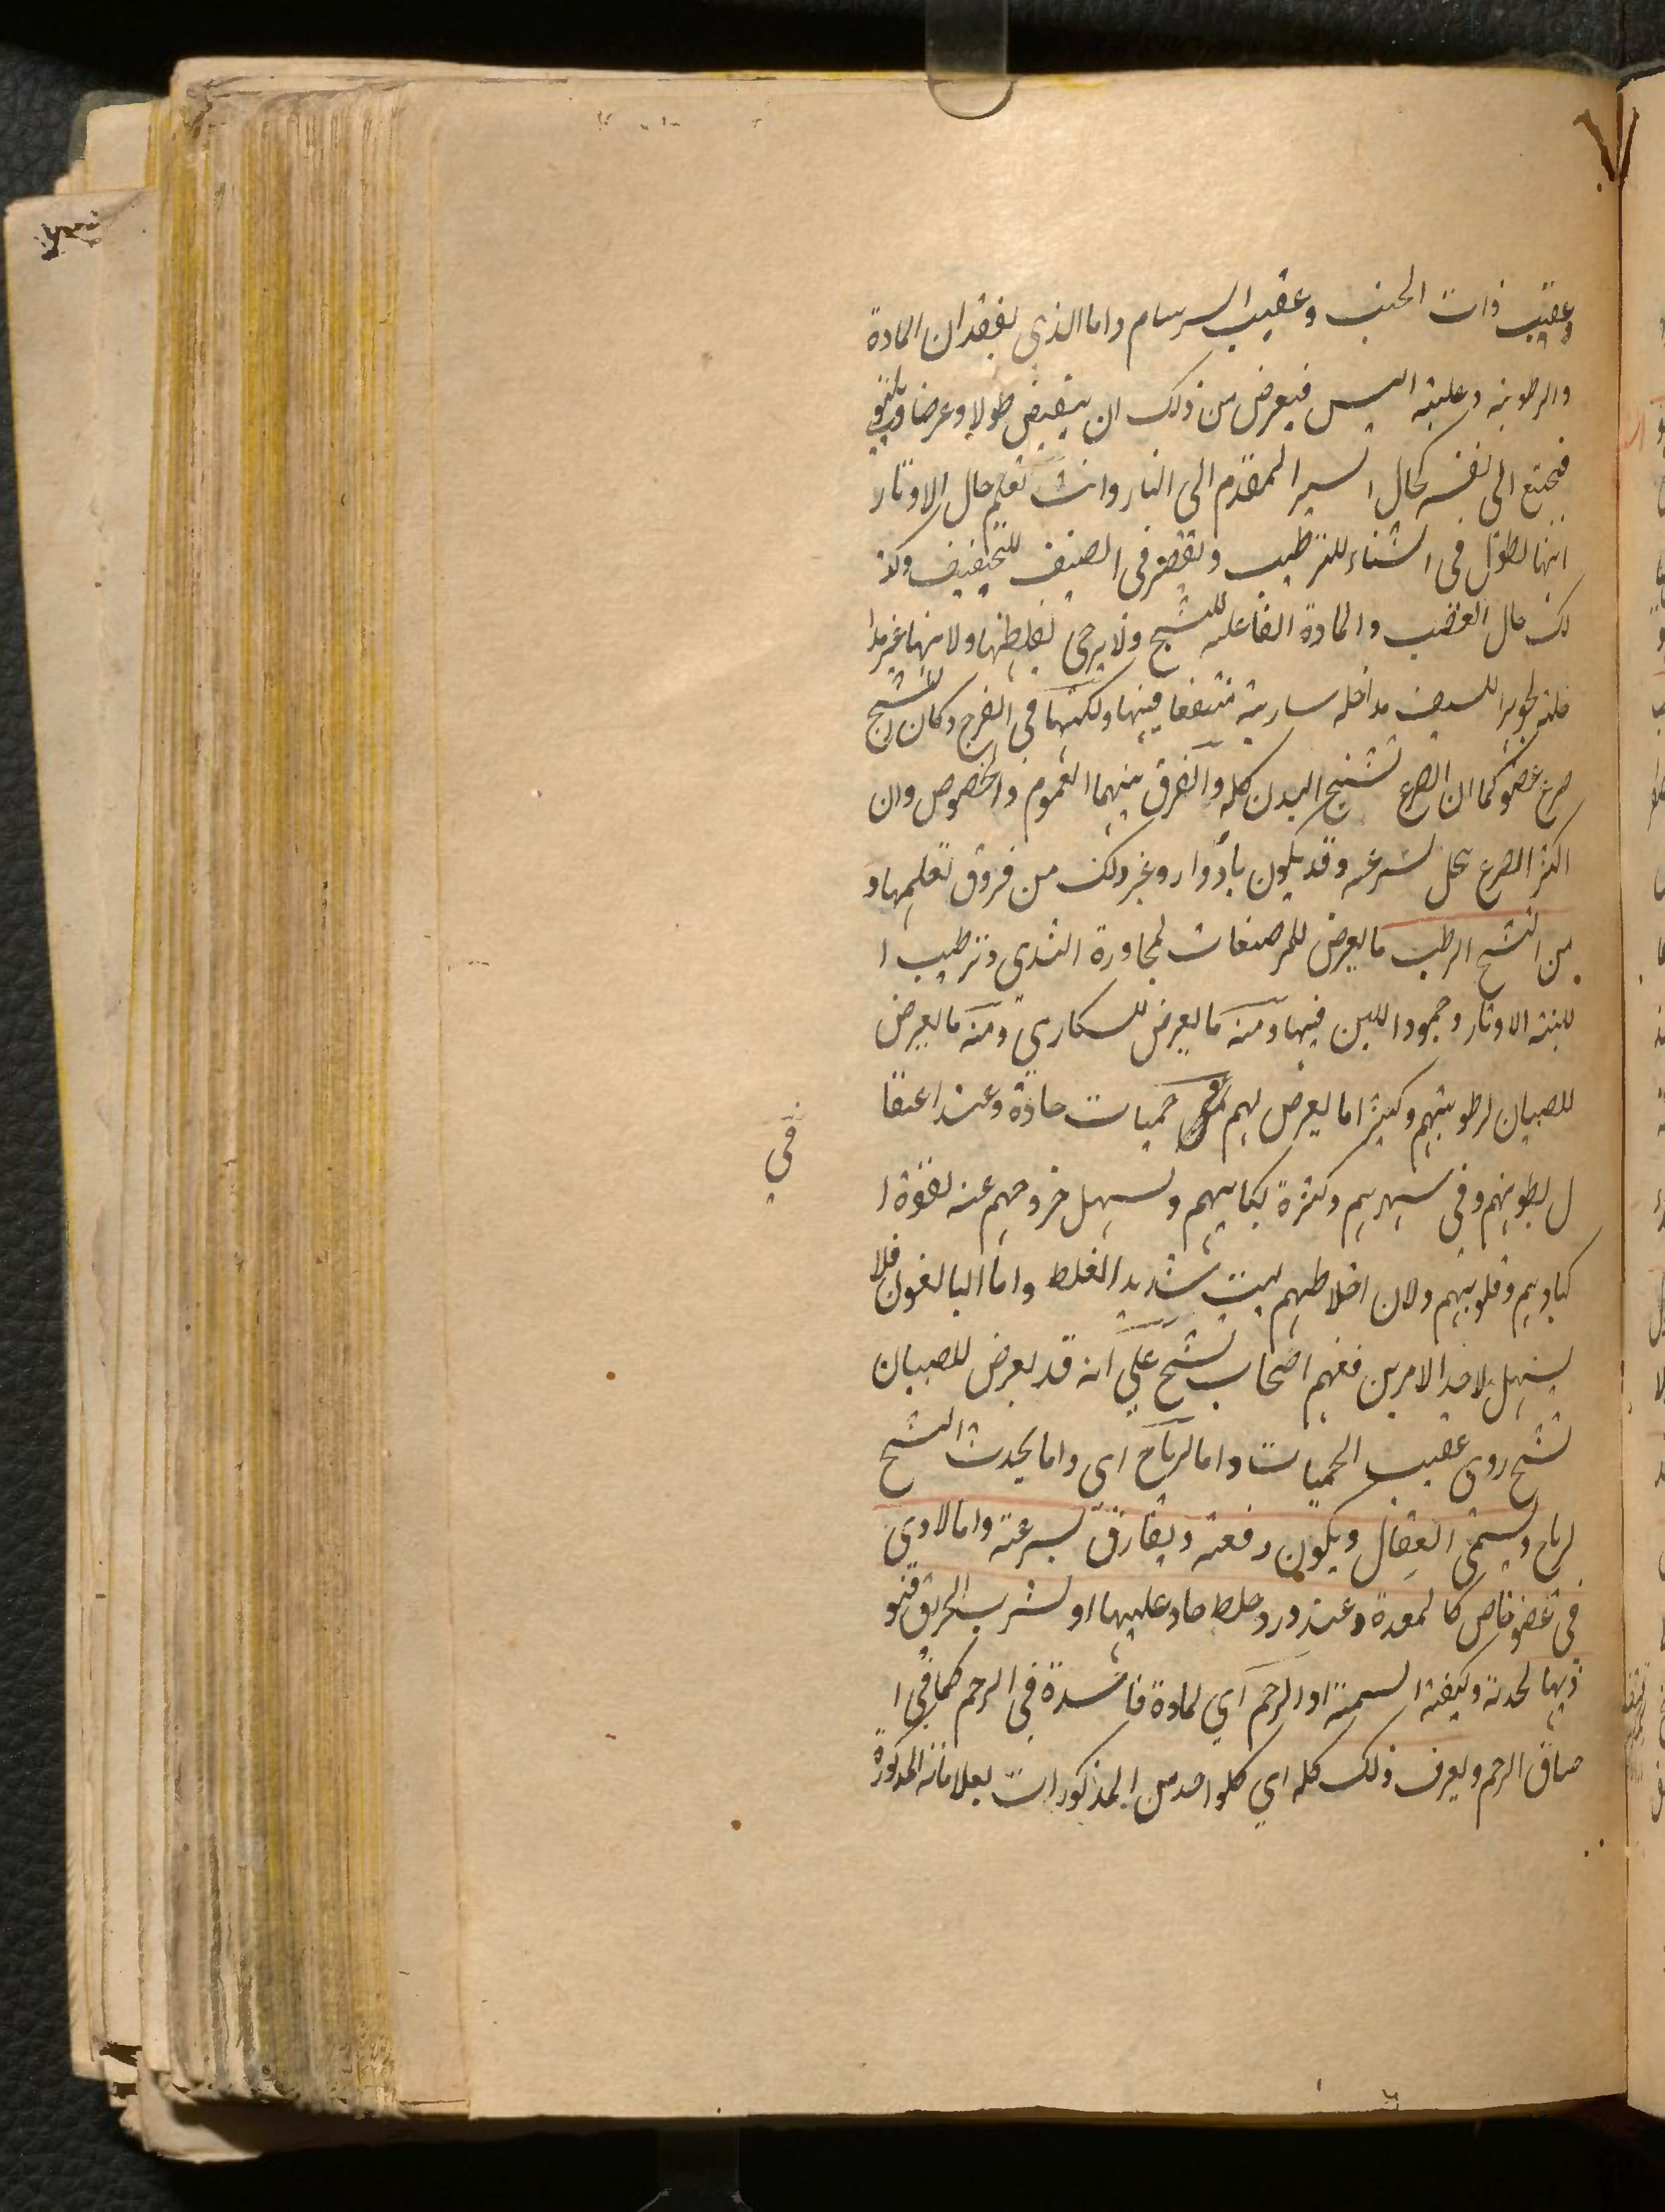 وعقيب ذات الجنب وعقيب السرسام واما الذى بفقدان المادة
والرطوبة وغلبته اليبس فيعرض من ذلك ان ينقبض طولا وعرضا
فيجتمع الى نفسه كحال السير المقدم الى النار وانت تعلم حال الاوتار
انها تطول فى الشتاء للترطيب وتقصر فى الصيف للتخفيف وكذ
لك حال العصب والمادة الفاعلة للتشنج ولا يرجى لغلظها ولانها غير مدا
خلته لجوهر الليف مداخله سارية منتفعا فيها ولكنها في الفرج وكان التشنج
صرع عضو كما ان الصرع تشنج البدن كله والفرق بينهما العموم والخصوص وان
اكثر الصرع يحل بسرعه وقد يكون بأدوار وغير ذلك من فروق تعلمها و
من التشنج الرطب ما يعرض للمرضعات لمجاورة الثدى وترطيب ا
للبنه الاوتار وجمود اللبن فيها ومنه ما يعرض للسكارى ومنه ما يعرض
للصبيان لرطوبتهم وكثيرا ما يعرض لهم في حميات حادة وعند اعتقا
ل بطونهم وفى سهرهم وكثرة بكائهم ويسهل خروجهم عنه لقوة ا
كبادهم وقلوبهم ولان اخلاطهم ليست شديد الغلظ واما البالغون فلا
يسهل لاحد الامرين فغيهم اصحاب تشنج علي انه قد يعرض للصبيان
تشنج ردى عقيب الحميات واما لرياح اى واما يحدث التشنج
لرياح ويسمى العقال ويكون دفعته ويفارق بسرعته واما لاذى
في عضو خاص كالمعدة وعند ورود خلط حاد عليها او شرب الخربق فتؤ
ذيها لحدته وكيفيته السمية او الرحم اي لمادة فاسدة في الرحم كما في ا
ختناق الرحم ويعرف ذلك كله اي كلواحد من المذكورات بعلاماته المذكورة
في